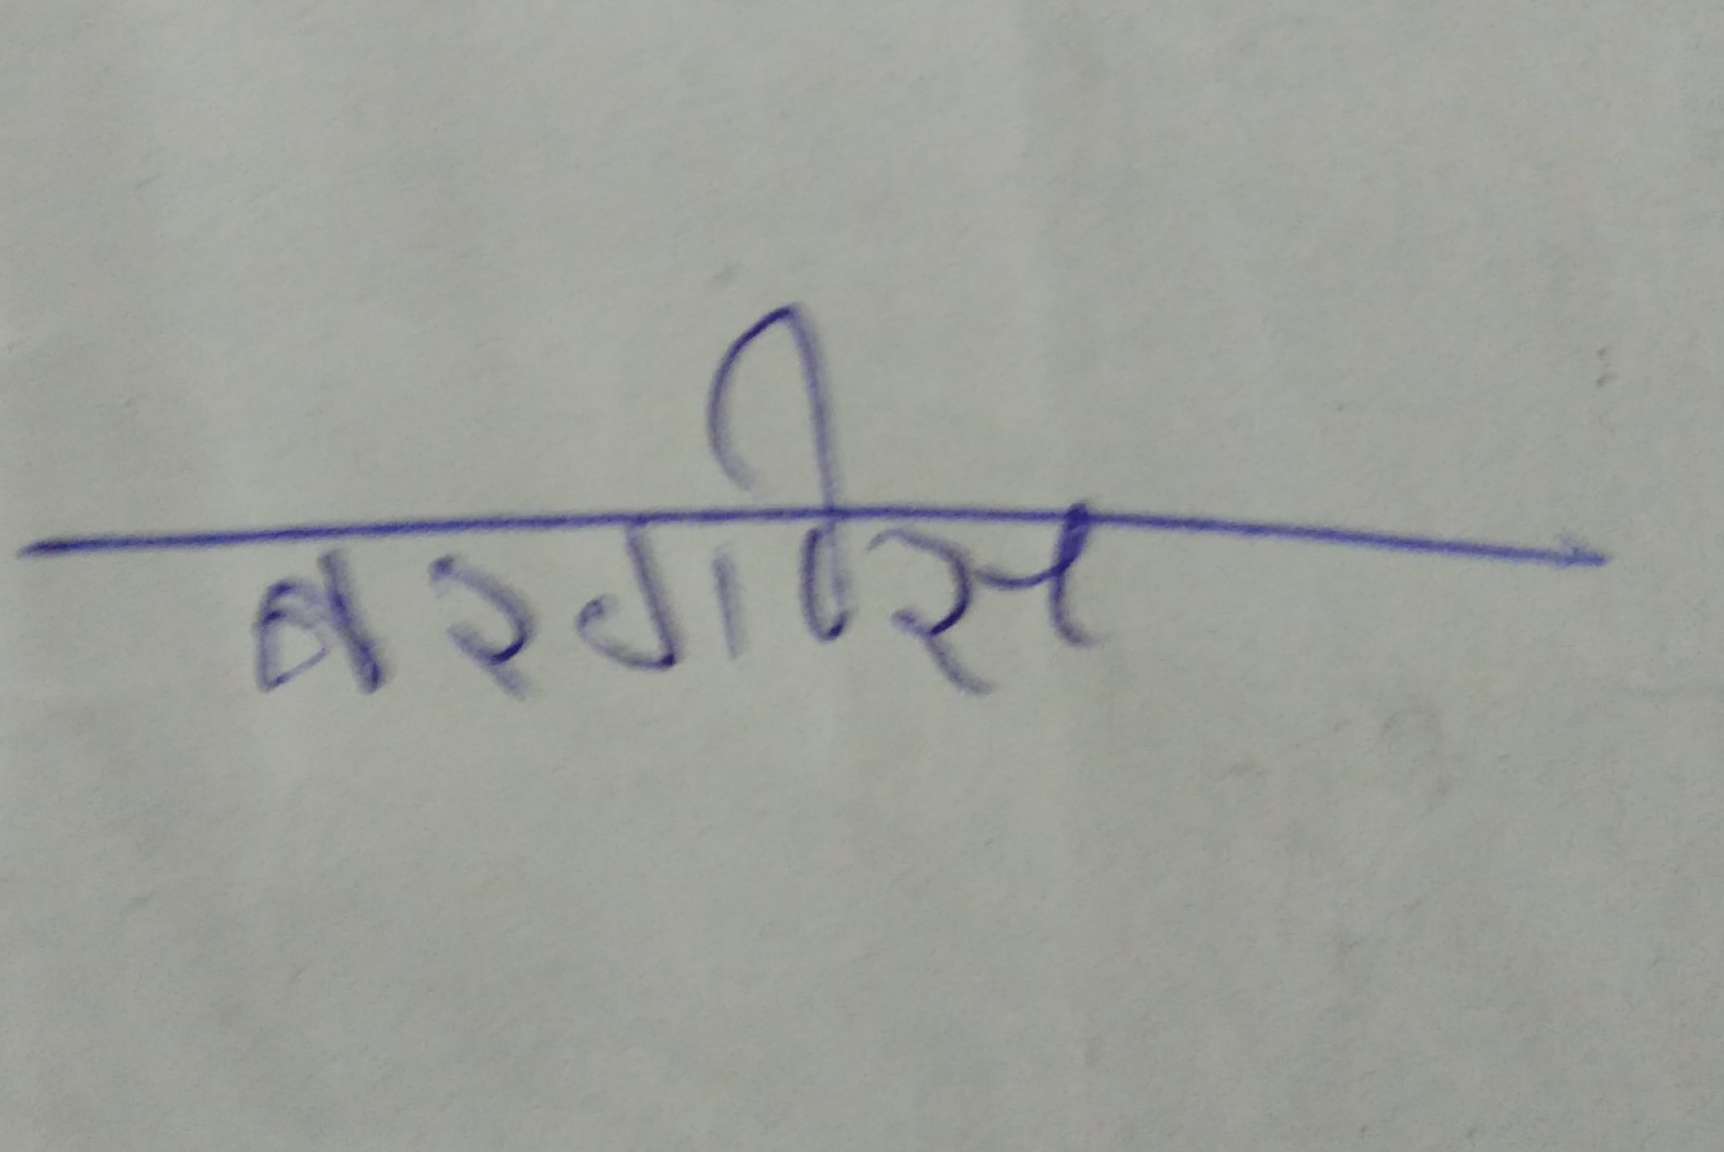 बरगीस